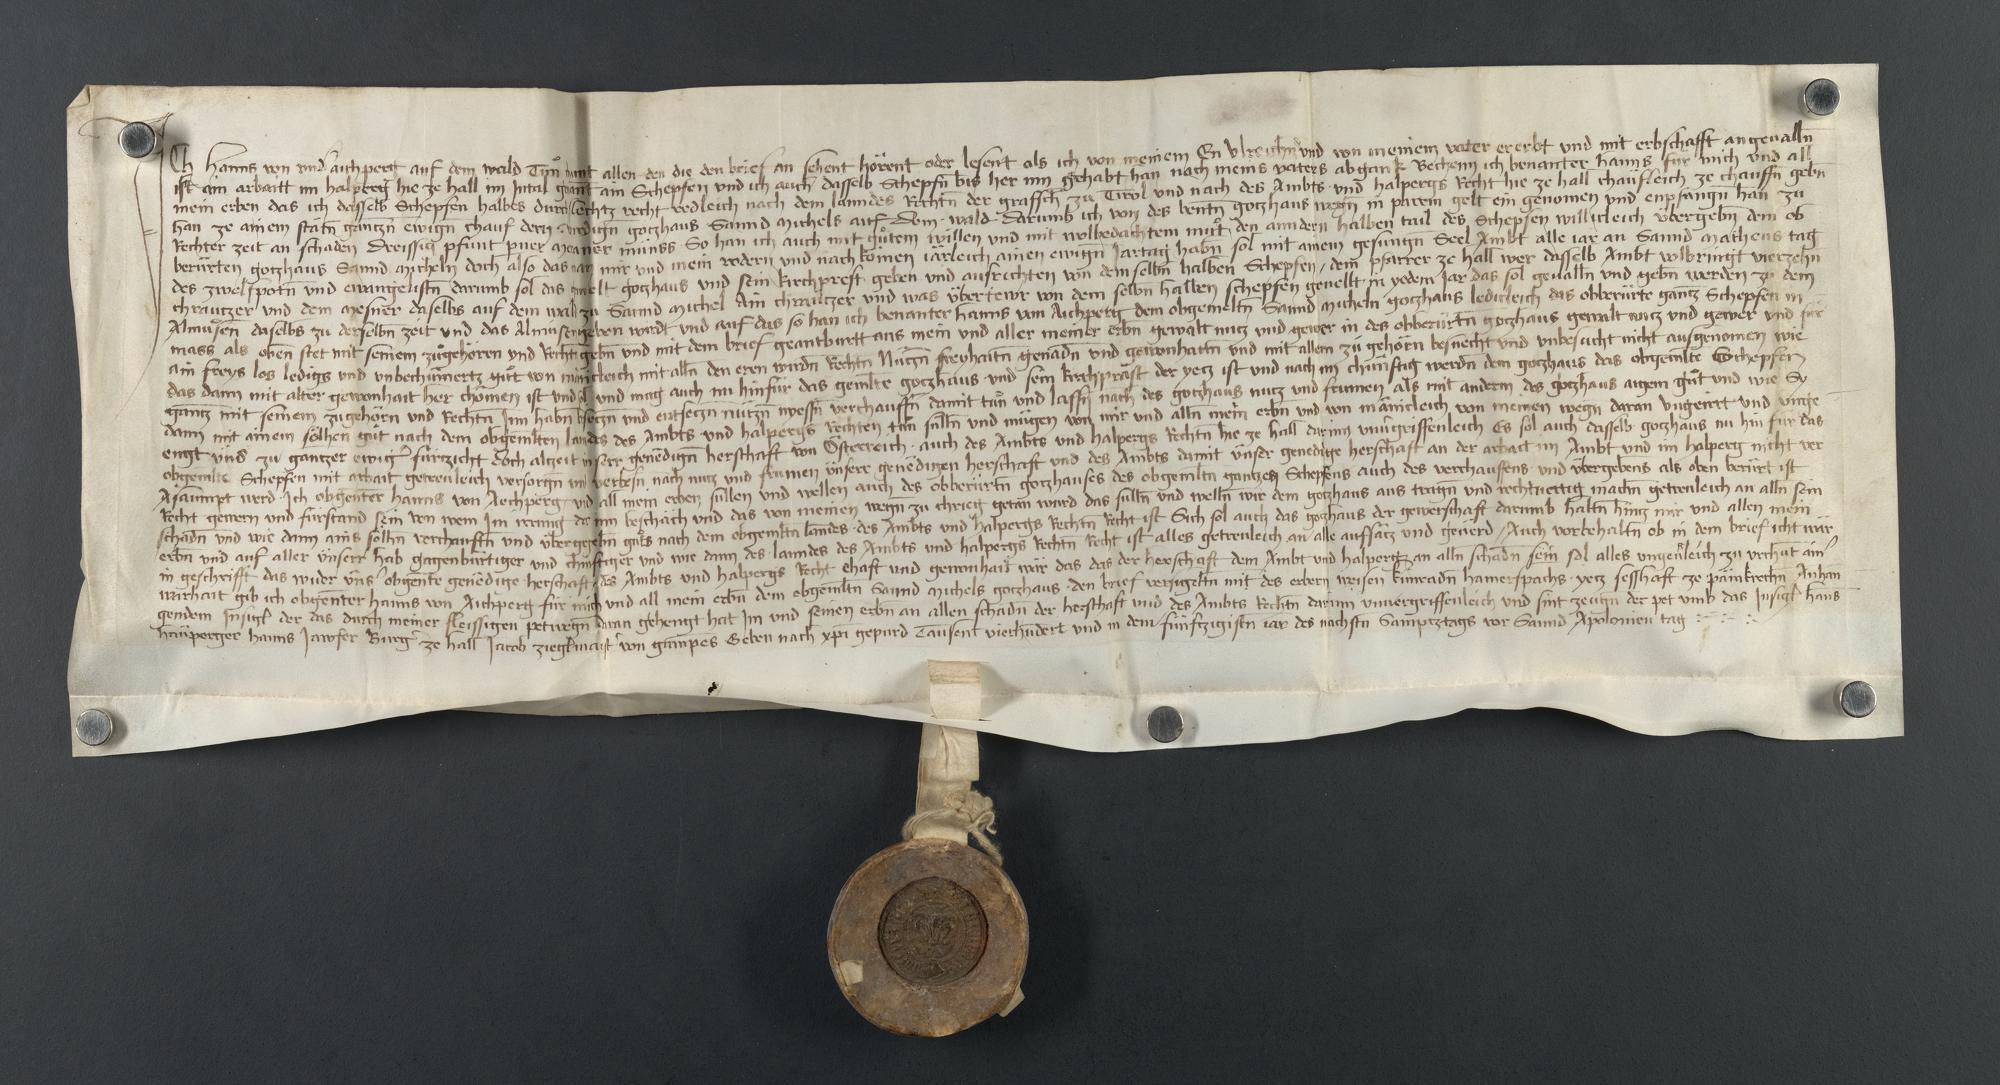 Ich Hanns von und Aichperg auf dem wald Tůn kunt allen den die den brief an sehent hörent oder lesent als ich von meinem En Ulreichn und von meinem vater ererbt und mit erbschafft angevalln
ist ain arbaitt im halperg hie ze hall im Intal genant ain Schepfen und ich auch dasselb Schepfn bis her inn gehabt han nach meins vaters abgank Bechenn ich benanter hanns für mich und all
mein erben das ich dasselb Schepfen halbes durchslechtz recht redleich nach dem lanndes Rechtn der graffsch zu Tirol und nach des Ambts und halpergs Recht hie ze hall chaufleich ze chauffn gebn
han ze ainem stätn gantzn ewign chauf dem wirdign gotzhaus Sannd Michels auf dem wald Darumb ich von des bentn gotzhaus wegn in parem gelt ein genomen und enpfangn han zu
Rechter zeit an schaden Dreissig pfunt pner Meraner münss So han ich auch mit gůtem willen und mit wolbedachtem můt den anndern halben tail des Schepfen williclich übergebn dem ob
berürten gotzhaus Sannd Micheln doch also das man mir und mein vodern und nach komen iarleich ainen ewign Jartag habn sol mit ainem gesungn Seel Ambt alle iar an Sannd Matheus tag
des zwelfpotn und ewangelistn darumb sol das gemelt gotzhaus und sein kirchprost geben und ausrichten von dem selbn halben Schepfen dem pfarrer ze hall wer dasselb Ambt volbringt vierzehn
chrautzer und dem Mesner daselbs auf dem wald zu Sannd Michel Ain chrautzer und was übertewr von dem selbn halben schepfen gevellt in yedem Jar das sol gevalln und gebn werden zu dem
Almůsen daselbs zu derselbn zeit und das Almusen geben wirdt und auf das so han ich benanter hanns von Aichperg dem obgemeltn Sannd Micheln gotzhaus ledicleich das obberürte gantz Schepfen in
mass als oben stet mit seinem zůgehören und Rechtn gebn und mit dem brief geantburtt aus mein und aller meiner erbn gewalt nutz und gewer in des obberürtn gotzhaus gewalt nutz und gewer und für
ain freys los ledigs und unbechümertz gůt von mänicleich mit alln den eren wirdn Rechtn Nützn freyhaitn genadn und gewonhaitn und mit allem zů gehörn besuecht und unbesucht nicht ausgenomen wie
das dann mit alter gewonhait her chömen ist und sol und mag auch nu hinfür das gemlte gotzhaus und sein kirchpräst der yetz ist und nach im chünftig werdn dem gotzhaus das obgemlte Schepfen
gantz mit seinem zugehörn und Rechtn Inn habn besetzn und entsetzn nützn niessn verchauffn damit tůn und lassn nach des gotzhaus nutz und frumen als mit anderm des gotzhaus aigem gůt und wie Sy
dann mit ainem sölhen gůt nach dem obgemlten landes des Ambts und halpergs Rechten tun sülln und mügen von mir und alln mein erbn und von mänicleich von meinen wegn daran ungeirrt und unge
engt und zu gantzer ewiger fürzicht Doch altzeit unserr genedign herschaft von Österreich auch des Ambts und halpergs Rechtn hie ze hall darinn unvergriffenleich Es sol auch dasselb gotzhaus nu hin für das
obgemlte Schepfen mit arbait getrenleich versorgn und verbesn nach nutz und frumen Unserr genedingen herschaft und des Ambts damit unser genedige herschaft an der arbait im Ambt und im halperg nicht ver
Asaumpt werd Ich obgenter hanns von Aichperg und all mein erben sullen und wellen auch des obberürtn gotzhauses des obgemltn gantzen Schepfens auch des verchauffens und übergebens als oben berürt ist
Recht gewern und fürstand sein von wem Im irrung darinn beschäch und das von meinen wegn zu chrieg getan würd das sülln und welln wir dem gotzhaus aus tragn und rechtvertig machn getrenleich an alln sein
schadn und wie dann ains sölhn verchaufftn und übergebm guts nach dem obgemltn landes des Ambts und halpergs Rechtn Recht ist Sich sol auch das gotzhaus der gewerschaft darumb haltn hintz mir und allen mein
erbn und auf aller unserr hab gagenbürtiger und chünftiger und wie dann des lanndes des Ambts und halpergs Rechtn Recht ist alles getrenleich an alle aufsätz und gevärd Auch vorbehaltn ob in dem brief icht wär
in geschrifft das wider uns obgente genedige herschaft des Ambts und halpergs Recht ehaft und gewonhait wär das das der herschaft dem Ambt und halperg an alln schadn sein sol alles ungevärleich zu urchunt ainer
warhait gib ich obgenter hanns von Aichperg für mich und all mein erbn dem obgemltn Sannd Michels gotzhaus den brief versigeltn mit des erbern weisen kunradn hamerspachs yetz sesshaft ze päinkrechn Anhan
gendem Insigl der das durch meiner fleissigen petwegn daran gehengt hat Im und seinen erbn an allen schadn der herschaft und des Ambts Rechtn darinn unvergriffenleich und sint zeugn der pet umb das Insigl hans
hauperger hanns Jawfer Burger ze hall Jacob zieglmair von gampes Geben nach xpi gepurd Tausent vierhundert und in dem fünftzigistn iar des nachstn Samptztags vor Sannd Apolonien tag